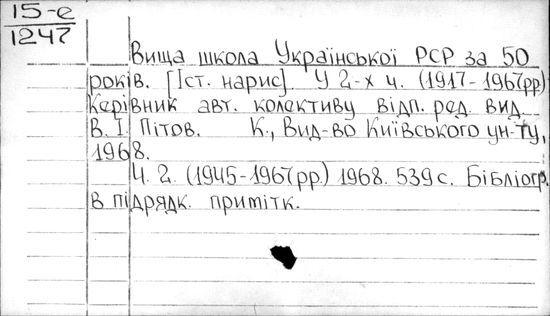 15-е
1247
Вища школа Української РСР за 50
років. [Іст. нарис]. У 2-х ч. (1917-1967рр)
Керівник авт. колективу відп. ред. вид.
В. І. Пітов. К., Вид-во Київського ун-ту,
1968.
Ч. 2. (1945-1967рр.) 1968. 539 с. Бібліогр.
в підрядк. примітк.